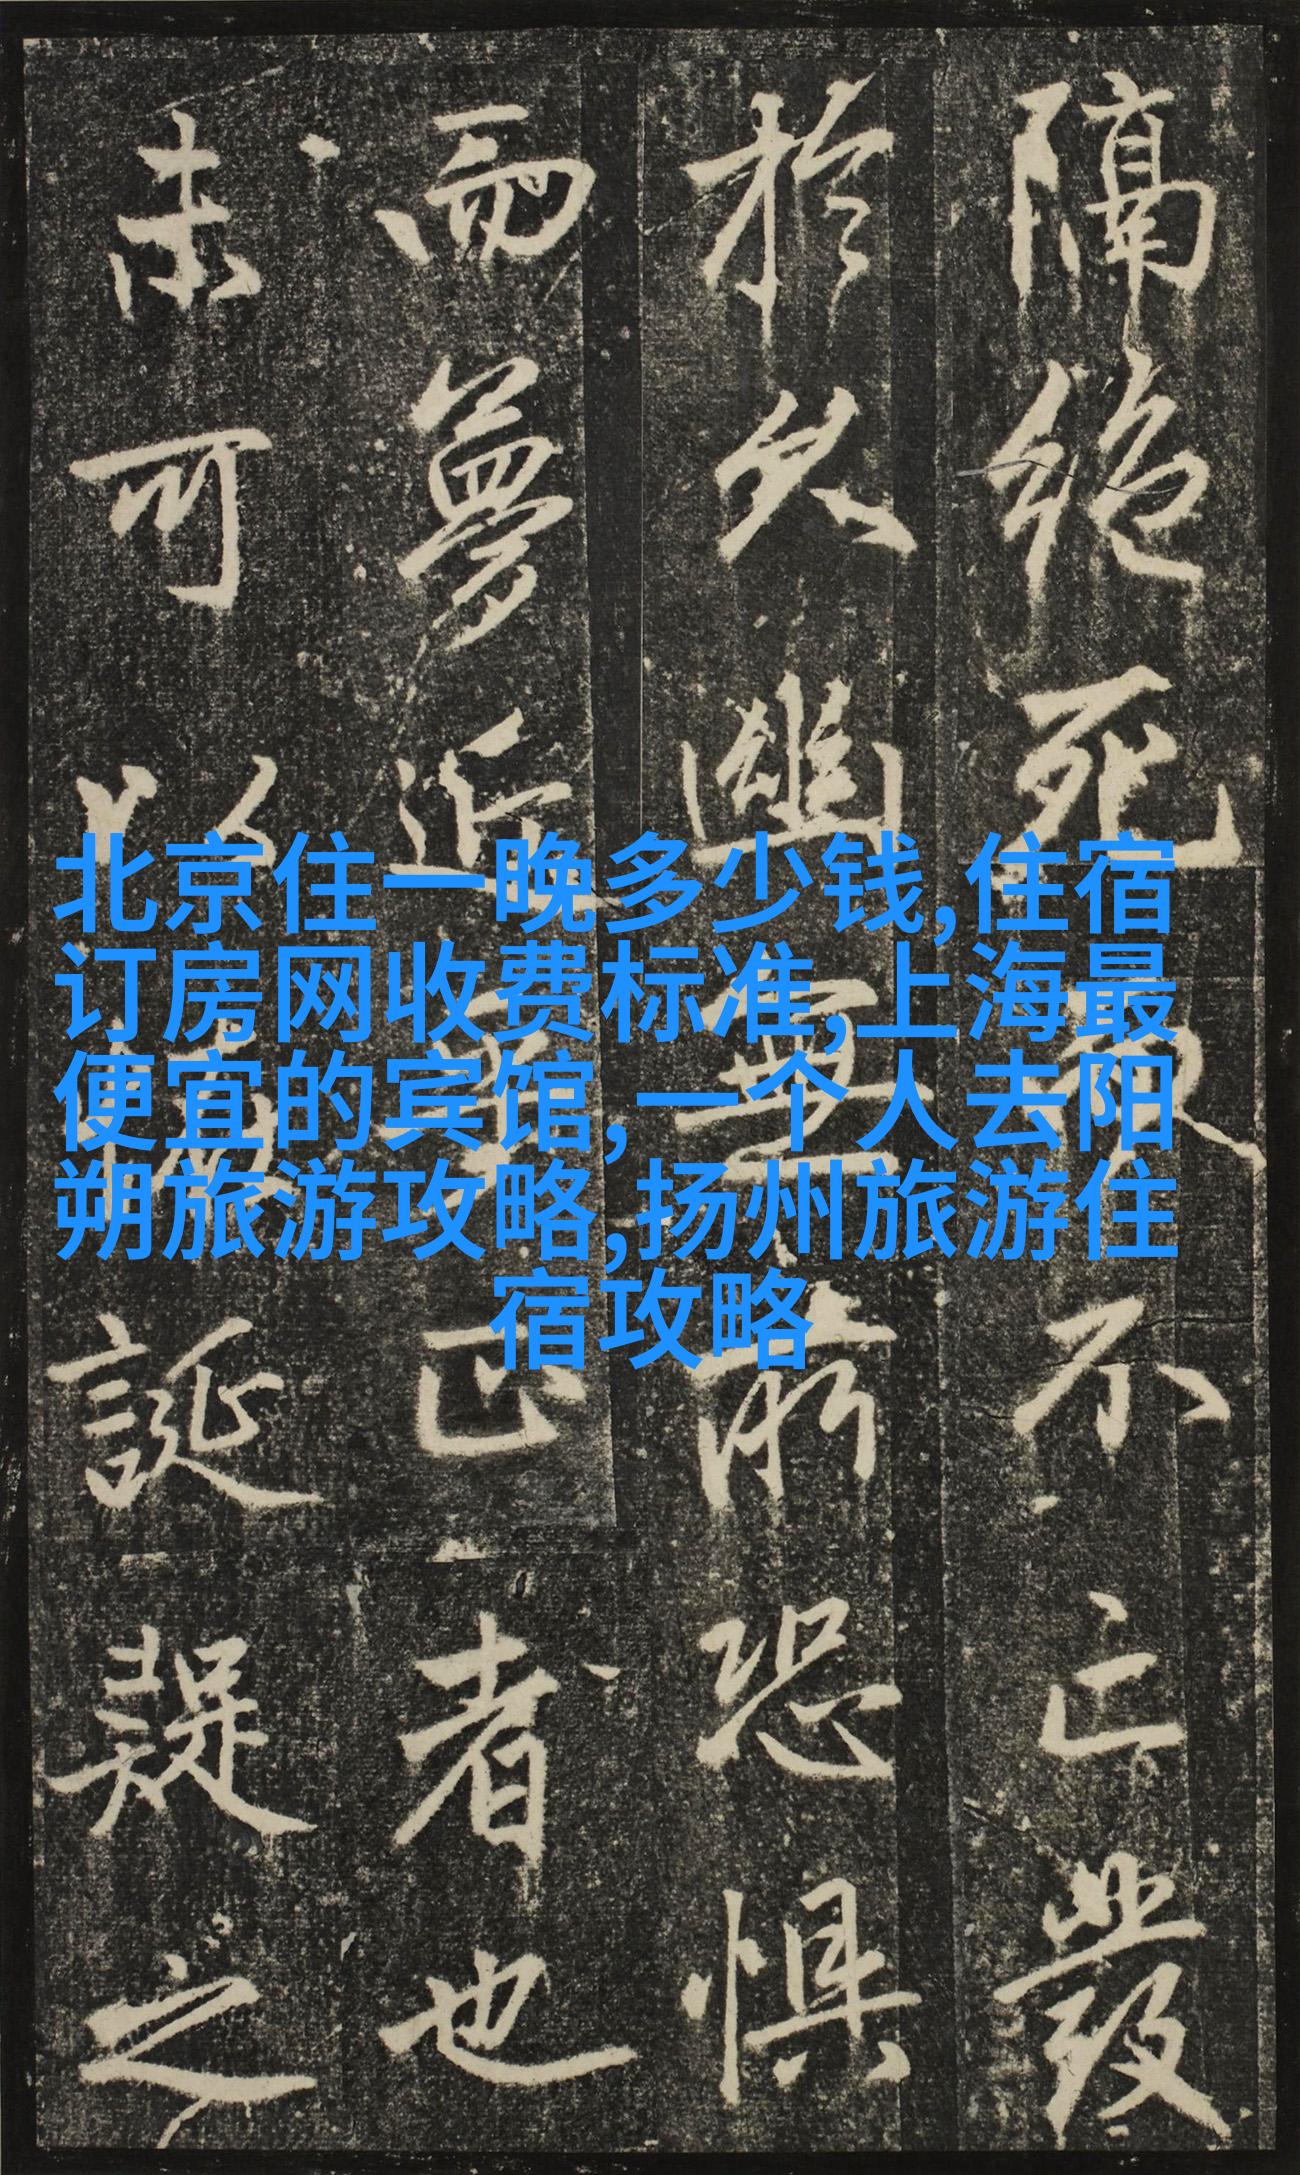 北京住一晚多少钱,住宿
订房网收费标准,上海最
便宜的宾馆,一个人去阳
朔旅游攻略,扬州旅游住
宿攻略
隔絕死不亡發
於久幽恐懼
而夢近正者也
未可以誕疑之